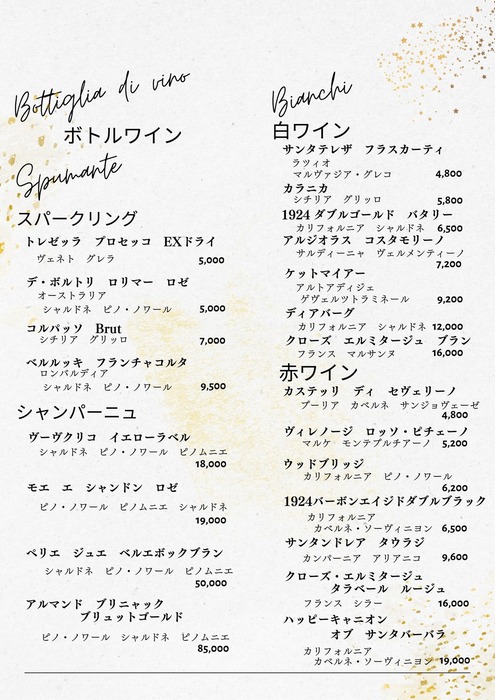 Bottiglia di vino
ボトルワイン
Spumante
スパークリング
トレゼッラ プロセッコ EXドライ
ヴェネト グレラ 5,000
デ・ボルトリ ロリマー ロゼ
オーストラリア
シャルドネ ピノ・ノワール 5,000
コルパッソ Brut
シチリア グリッロ 7,000
ベルルッキ フランチャコルタ
ロンバルディア
シャルドネ ピノ・ノワール 9,500
シャンパーニュ
ヴーヴクリコ イエローラベル
シャルドネ ピノ・ノワール ピノムニエ
18,000
モエ エ シャンドン ロゼ
ピノ・ノワール ピノムニエ シャルドネ
19,000
ペリエ ジュエ ベルエポックブラン
シャルドネ ピノ・ノワール ピノムニエ
50,000
アルマンド ブリニャック
ブリュットゴールド
ピノ・ノワール シャルドネ ピノムニエ
85,000
Bianchi
白ワイン
サンタテレザ フラスカーティ
ラツィオ
マルヴァジア・グレコ 4,800
カラニカ
シチリア グリッロ 5,800
1924 ダブルゴールド バタリー
カリフォルニア シャルドネ 6,500
アルジオラス コスタモリーノ
サルディーニャ ヴェルメンティーノ
7,200
ケットマイアー
アルトアディジェ
ゲヴェルツトラミネール 9,200
ディアバーグ
カリフォルニア シャルドネ 12,000
クローズ エルミタージュ ブラン
フランス マルサンヌ 16,000
赤ワイン
カステッリ ディ セヴェリーノ
プーリア カベルネ サンジョヴェーゼ
4,800
ヴィレノージ ロッソ・ピチェーノ
マルケ モンテプルチアーノ 5,200
ウッドブリッジ
カリフォルニア ピノ・ノワール
6,200
1924バーボンエイジドダブルブラック
カリフォルニア
カベルネ・ソーヴィニヨン 6,500
サンタンドレア タウラジ
カンパーニア アリアニコ 9,600
クローズ・エルミタージュ
タラベール ルージュ
フランス シラー 16,000
ハッピーキャニオン
オブ サンタバーバラ
カリフォルニア
カベルネ・ソーヴィニヨン 19,000